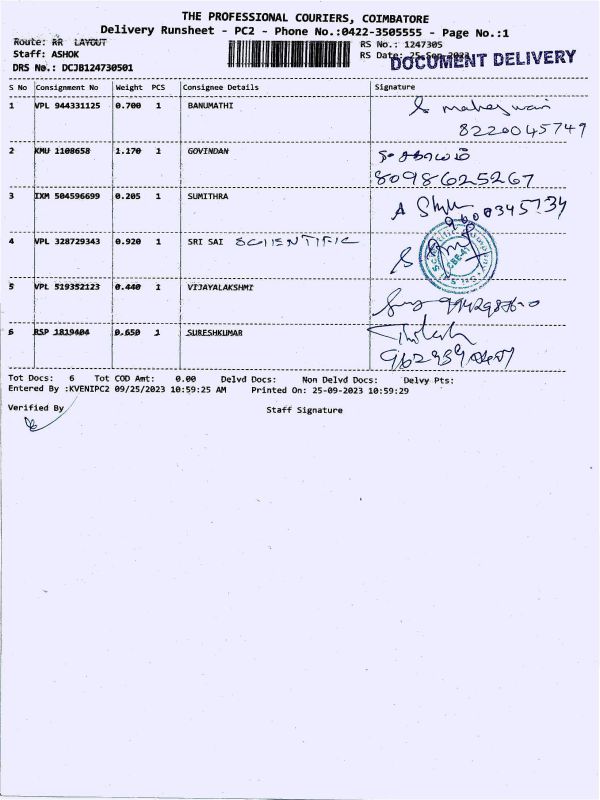 THE PROFESSIONAL COURIERS, COIMBATORE
Delivery Runsheet - PC2 - Phone No.:0422-3505555 - Page No.:1
Route: RR LAYOUT
RS No.: 1247305
Staff: ASHOK
RS Date: 25-Sep-2023
DOCUMENT DELIVERY
DRS No.: DCJB124730501
S No Consignment No Weight PCS Consignee Details Signature
1 VPL 944331125 0.700 1 BANUMATHI
8220045749
2 KMU 1108658 1.170 1 GOVINDAN
8098625267
3 IXM 504596699 0.205 1 SUMITHRA
4 VPL 328729343 0.920 1 SRI SAI SCIIENTIFIC
5 VPL 519352123 0.440 1 VIJAYALAKSHMI
6 RSP 1819404 0.650 1 SURESHKUMAR
Tot Docs: 6 Tot COD Amt: 0.00 Delvd Docs: Non Delvd Docs: Delvy Pts:
Entered By :KVENIPC2 09/25/2023 10:59:25 AM Printed On: 25-09-2023 10:59:29
Verified By
Staff Signature